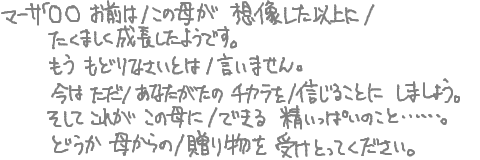 マーザ〇〇 お前は/この母が 想像した以上に/
たくましく成長したようです。
もう もどりなさいとは/言いません。
今は ただ/あなたがたの チカラを/信じることに しましょう。
そして これが この母に/できる 精いっぱいのこと……。
どうか 母からの/贈り物を 受けとってください。